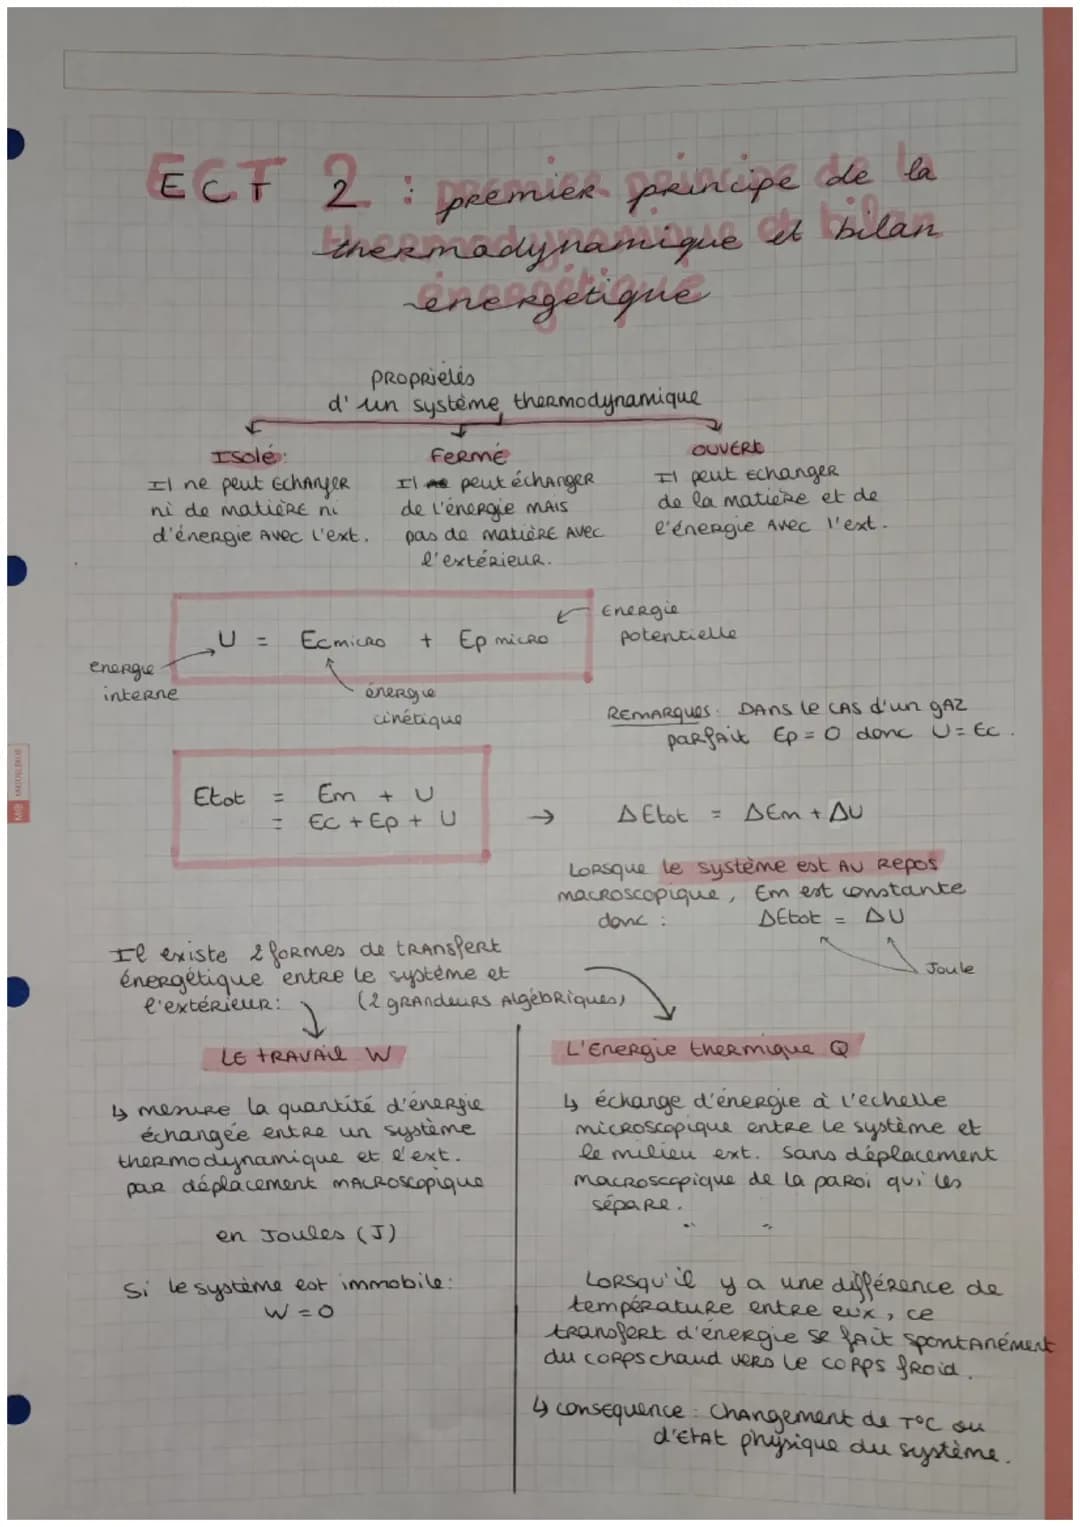 ECT 2 : premier principe de la
thermodynamique et bilan
énergétique
propriétés
d'un système thermodynamique
Isolé :
Il ne peut échanger
ni de matière ni
d'énergie avec l'ext.
Fermé
Il peut échanger
de l'énergie mais
pas de matière avec
l'extérieur.
OUVERT
Il peut échanger
de la matière et de
l'énergie avec l'ext.
U = Ecmicro + Ep micro
Energie
potentielle
energie
interne
énergie
cinétique
REMARQUES : Dans le cas d'un gaz
parfait Ep = 0 donc U = Ec.
Etot = Em + U
= Ec + Ep + U
→ ΔEtot = ΔEm + ΔU
Lorsque le système est au repos
macroscopique, Em est constante
donc : ΔEtot = ΔU
Joule
Il existe 2 formes de transfert
énergétique entre le système et
l'extérieur : (2 grandeurs Algébriques)
LE TRAVAIL W
↳ mesure la quantité d'énergie
échangée entre un système
thermodynamique et l'ext.
par déplacement macroscopique
en Joules (J)
Si le système est immobile :
W = 0
L'Energie thermique Q
↳ échange d'énergie à l'echelle
microscopique entre le système et
le milieu ext. sans déplacement
macroscopique de la paroi qui les
sépare.
Lorsqu'il y a une différence de
température entre eux, ce
transfert d'énergie se fait spontanément
du corps chaud vers le corps froid.
↳ consequence : Changement de T°C ou
d'état physique du système.